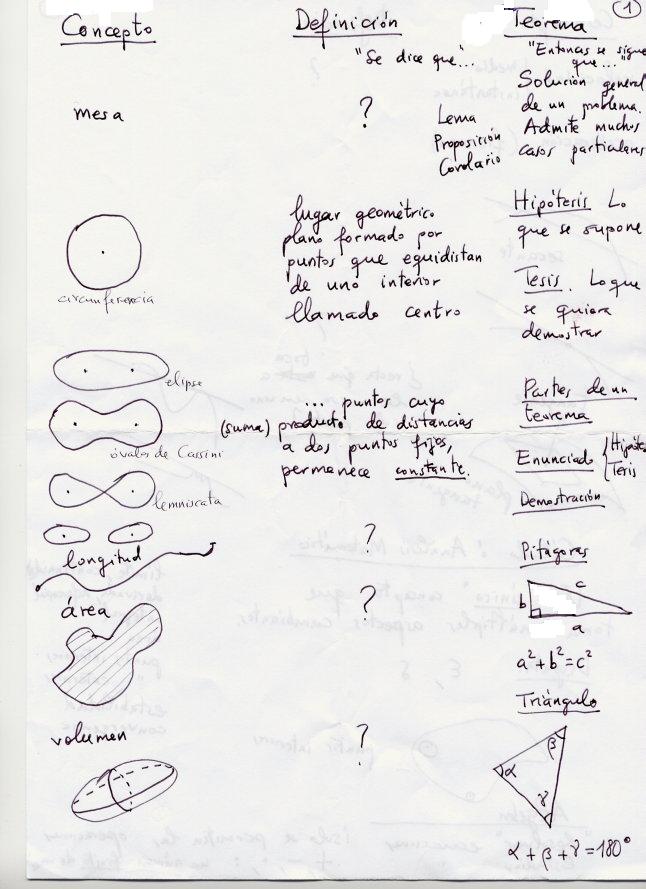 1
Concepto
Definición
Teorema
"Se dice que"...
"Entonces se sigue
que..."
mesa
?
Lema
Proposición
Corolario
Solución general
de un problema.
Admite muchos
casos particulares
circunferencia
lugar geométrico
plano formado por
puntos que equidistan
de uno interior
llamado centro
Hipótesis Lo
que se supone
Tesis. Lo que
se quiere
demostrar
elipse
óvalos de Cassini
lemniscata
... puntos cuyo
(suma) producto de distancias
a dos puntos fijos,
permanece constante.
Partes de un
teorema
Enunciado
Hipótesis
Tesis
Demostración
longitud
?
área
?
volumen
?
Pitágoras
b
c
a
a²+b²=c²
Triángulo
α
β
γ
α + β + γ = 180°